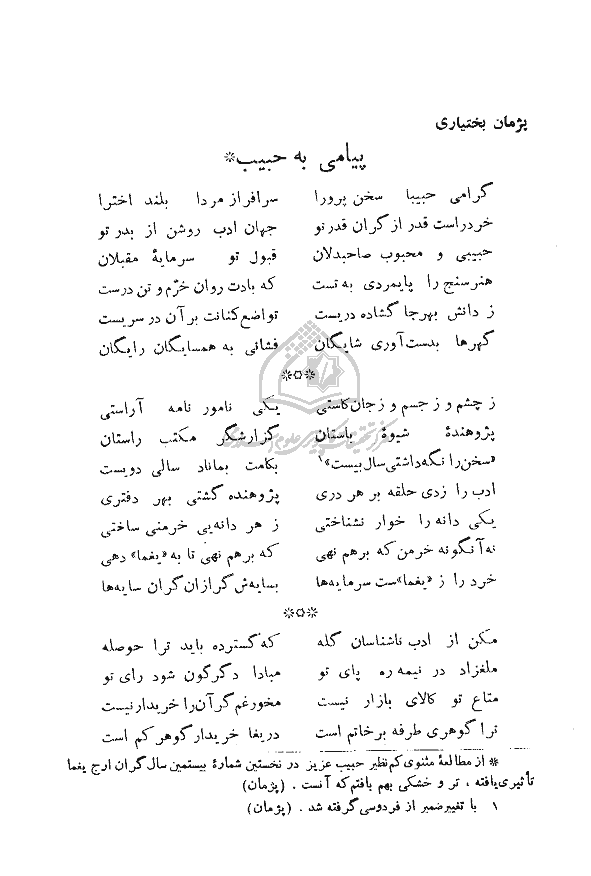 پژمان بختیاری
پیامی به حبیب*
گرامی حبیبا سخن پرورا سرافراز مردا بلند اخترا
خردراست قدر از گران قدر تو جهان ادب روشن از بدر تو
حبیبی و محبوب صاحبدلان قبول تو سرمایهٔ مقبلان
هنرسنج را پایمردی به تست که بادت روان خرّم و تن درست
ز دانش بهرجا گشاده دریست تواضع کنانت بر آن در سریست
گهرها بدست آوری شایگان فشانی به همسایگان رایگان
*○*
ز چشم و ز جسم و ز جان کاستی یکی نامور نامه آراستی
پژوهندهٔ شیوهٔ باستان گزارشگر مکتب راستان
«سخن را نگه داشتی سال بیست»۱ بکامت بماناد سالی دویست
ادب را زدی حلقه بر هر دری پژوهنده گشتی بهر دفتری
یکی دانه را خوار نشناختی ز هر دانه‌یی خرمنی ساختی
نه آنگونه خرمن که برهم نهی که برهم نهی تا به «یغما» دهی
خرد را ز «یغما»ست سرمایه‌ها بسایه‌ش گرازان گران سایه‌ها
*○*
مکن از ادب ناشناسان گله که گسترده باید ترا حوصله
ملغزاد در نیمه ره پای تو مبادا دگرگون شود رای تو
متاع تو کالای بازار نیست مخور غم گر آن را خریدار نیست
ترا گوهری طرفه بر خاتم است دریغا خریدار گوهر کم است
* از مطالعهٔ مثنوی کم نظیر حبیب عزیز در نخستین شمارهٔ بیستمین سال گران ارج یغما
تأثیری یافته ، تر و خشکی بهم بافتم که آنست . (پژمان)
۱ با تغییر ضمیر از فردوسی گرفته شد . (پژمان)